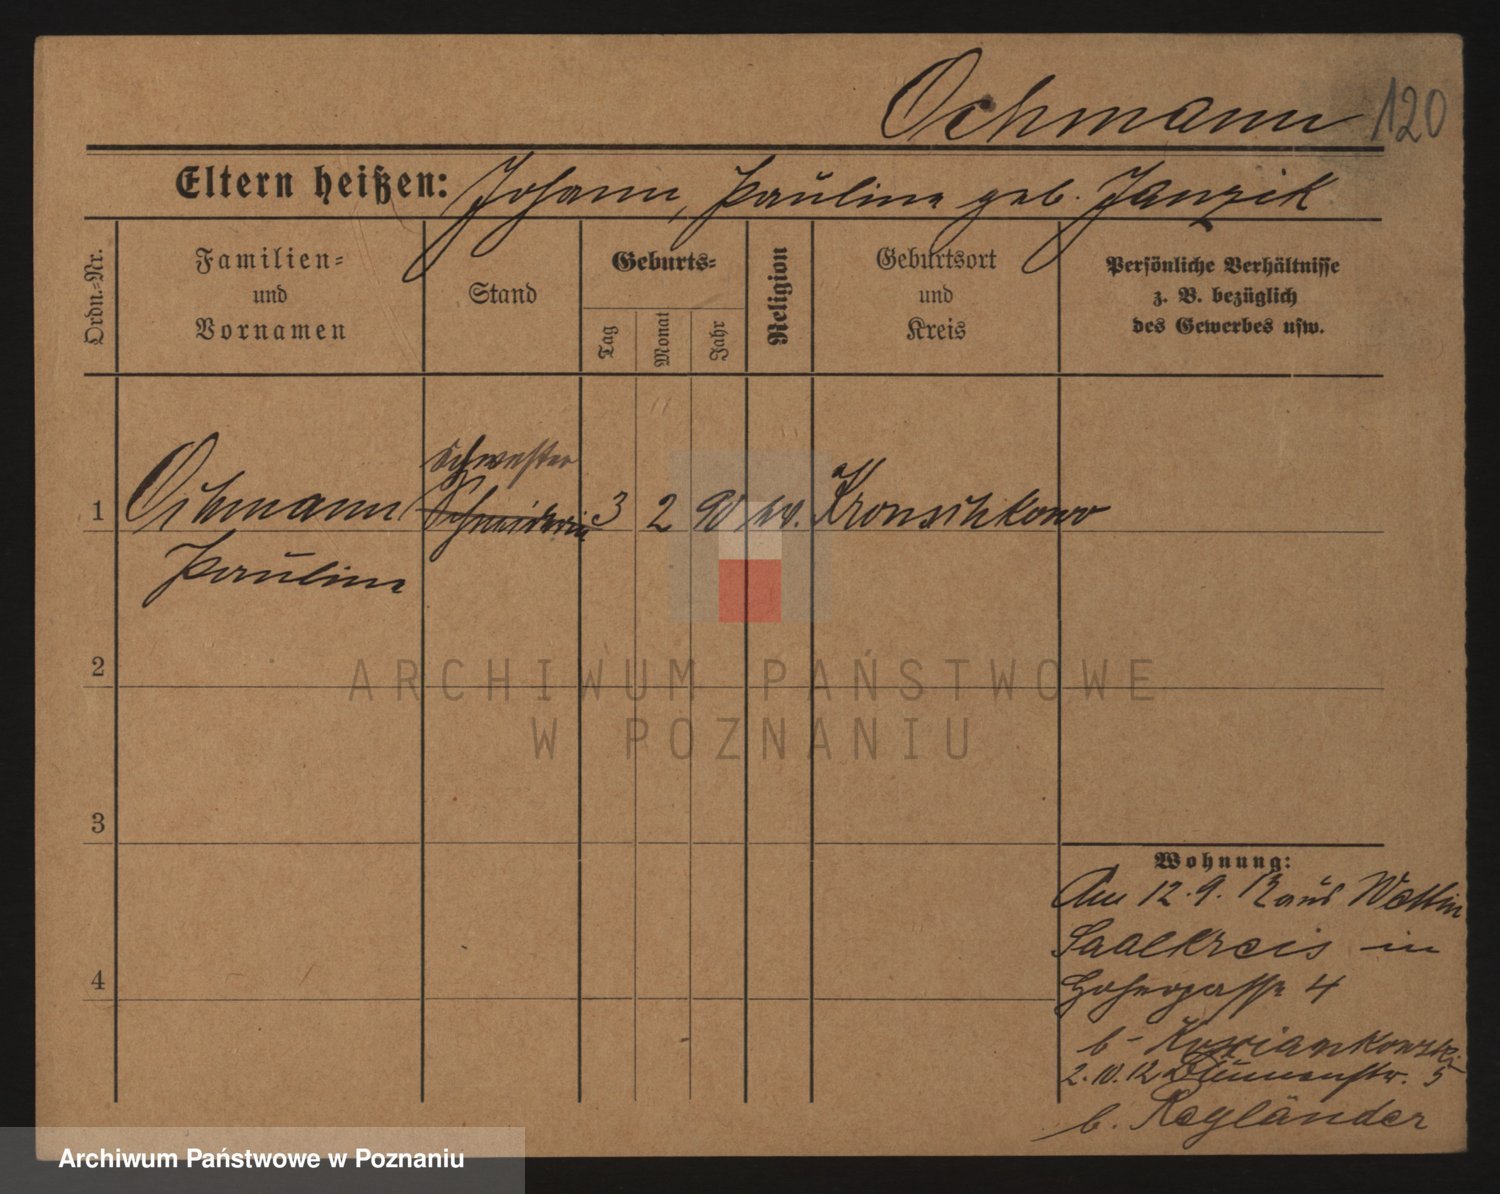 Ochmann 120
Eltern heißen: Johann, Pauline geb. Janzik
Ordn.-Nr.
Familien-
und
Vornamen
Stand
Geburts-
Tag
Monat
Jahr
Religion
Geburtsort
und
Kreis
Persönliche Verhältnisse
z. B. bezüglich
des Gewerbes usw.
Schwester
1 Ochmann Schneiderin 3 2 90 Kronschkowo
Pauline
2
3
4
Wohnung:
Am 12.9.12 aus Wettin
Saalkreis in
4
b.
2.10.12 Blumenstr. 5
b. Regländer
ARCHIWUM PAŃSTWOWE
W POZNANIU
Archiwum Państwowe w Poznaniu